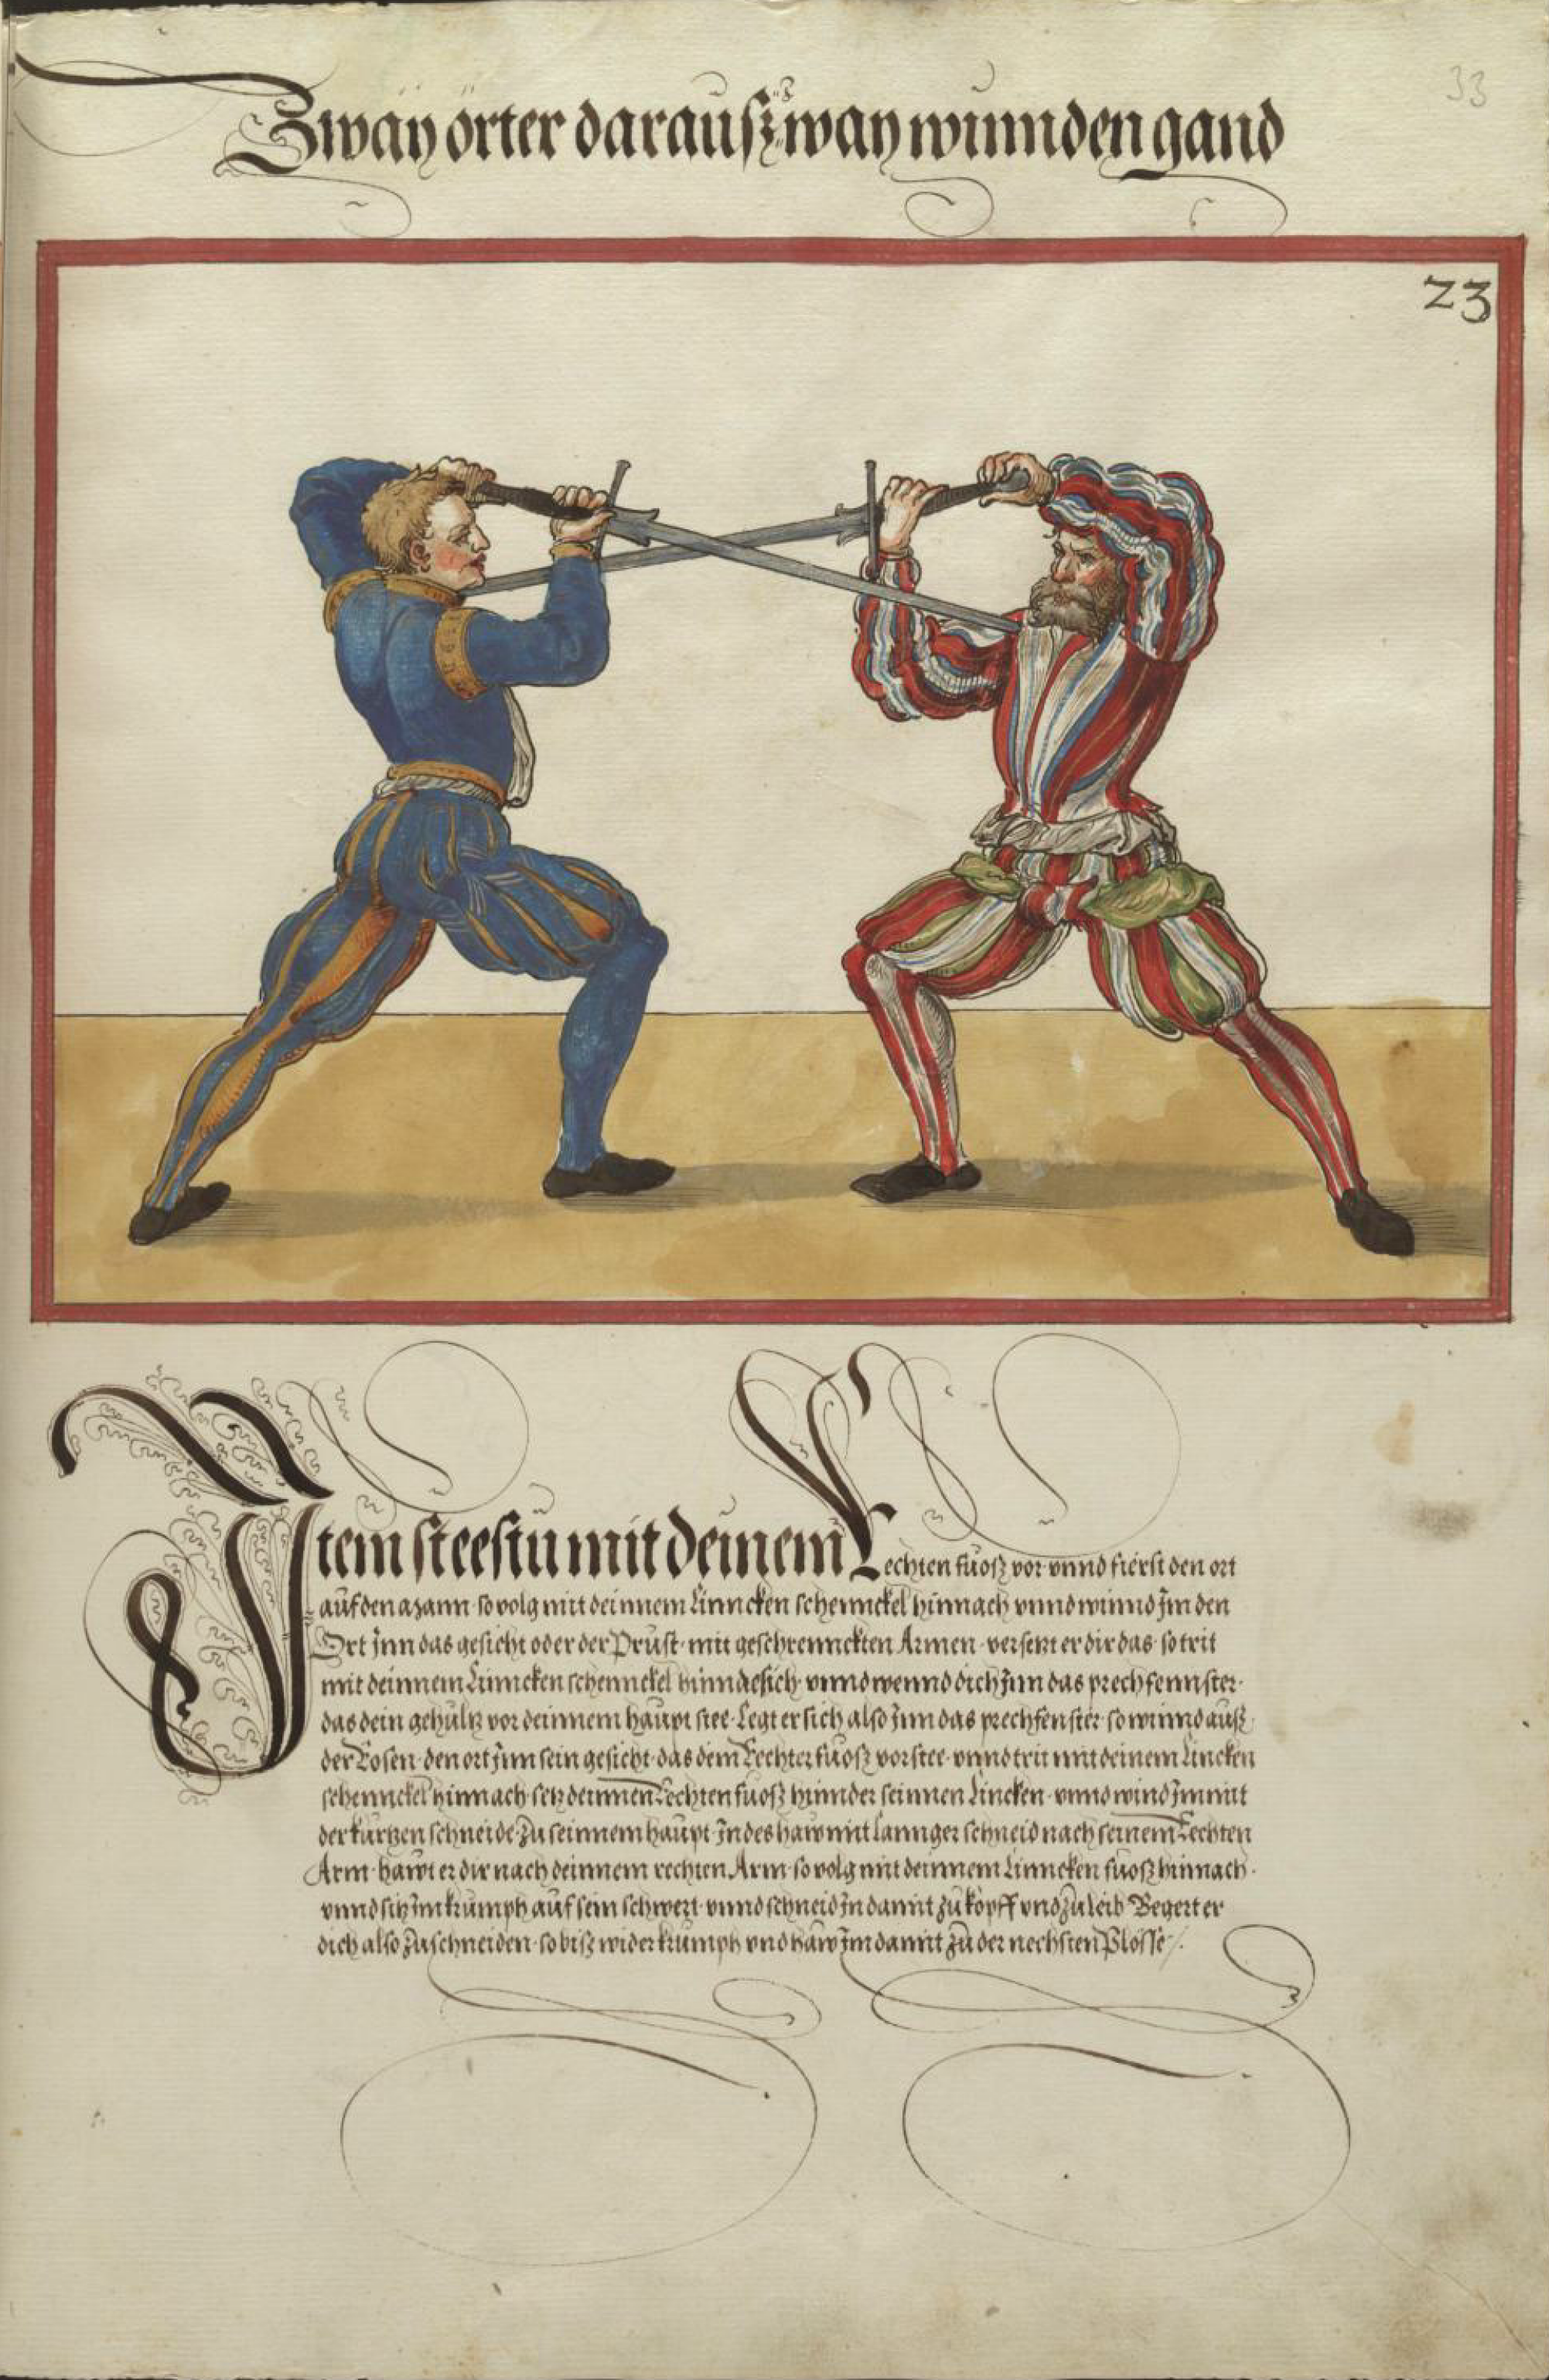 33
Zway örter darausz zway wunnden gand
23
Item steestu mit deinem Rechten fuosz vor vnnd fierst den ort
auf den Mann so volg mit deinnem Linncken schennckel hinnach vnnd winnd Jm den
Ort Jnn das gesicht oder der Prust mit geschrennckten Armen versetzt er dir das so trit
mit deinnem Linncken schennckel hinndersich vnnd wennd dich Jnn das prechfennster
das dein gehültz vor deinnem haupt stee Legt er sich also Jnn das prechfenster so winnd ausz
der Rosen den ort Jnn sein gesicht das dein Rechter fuosz vor stee vnnd trit mit deinem Lincken
schennckel hinnach setz deinnen Rechten fuosz hinnder seinnen Lincken vnnd wind Jm mit
der kurtzen schneide Zu seinnem haupt Jndes haw mit lannger schneid nach seinem Rechten
Arm hawt er dir nach deinnem rechten Arm so volg mit deinnem Linncken fuosz hinnach
vnnd sitz Jm krumph auf sein schwert vnnd schneid Jn damit zu kopff vnd zu leib Begert er
dich also zuschneiden so bisz wider krumph vnd haw Jm damit zu der nechsten Plösse /.